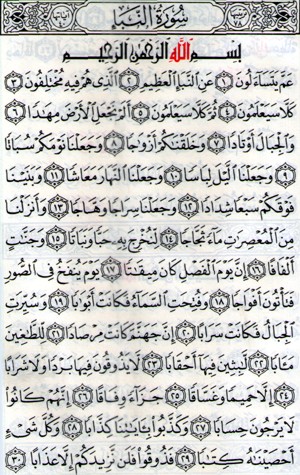 سُورَةُ النَّبَإِ
بِسْمِ اللَّهِ الرَّحْمَٰنِ الرَّحِيمِ
عَمَّ يَتَسَاءَلُونَ ١ عَنِ النَّبَإِ الْعَظِيمِ ٢ الَّذِي هُمْ فِيهِ مُخْتَلِفُونَ ٣
كَلَّا سَيَعْلَمُونَ ٤ ثُمَّ كَلَّا سَيَعْلَمُونَ ٥ أَلَمْ نَجْعَلِ الْأَرْضَ مِهَادًا ٦
وَالْجِبَالَ أَوْتَادًا ٧ وَخَلَقْنَاكُمْ أَزْوَاجًا ٨ وَجَعَلْنَا نَوْمَكُمْ سُبَاتًا
٩ وَجَعَلْنَا اللَّيْلَ لِبَاسًا ١٠ وَجَعَلْنَا النَّهَارَ مَعَاشًا ١١ وَبَنَيْنَا
فَوْقَكُمْ سَبْعًا شِدَادًا ١٢ وَجَعَلْنَا سِرَاجًا وَهَّاجًا ١٣ وَأَنْزَلْنَا
مِنَ الْمُعْصِرَاتِ مَاءً ثَجَّاجًا ١٤ لِنُخْرِجَ بِهِ حَبًّا وَنَبَاتًا ١٥ وَجَنَّاتٍ
أَلْفَافًا ١٦ إِنَّ يَوْمَ الْفَصْلِ كَانَ مِيقَاتًا ١٧ يَوْمَ يُنْفَخُ فِي الصُّورِ
فَتَأْتُونَ أَفْوَاجًا ١٨ وَفُتِحَتِ السَّمَاءُ فَكَانَتْ أَبْوَابًا ١٩ وَسُيِّرَتِ
الْجِبَالُ فَكَانَتْ سَرَابًا ٢٠ إِنَّ جَهَنَّمَ كَانَتْ مِرْصَادًا ٢١ لِلطَّاغِينَ
مَآبًا ٢٢ لَابِثِينَ فِيهَا أَحْقَابًا ٢٣ لَا يَذُوقُونَ فِيهَا بَرْدًا وَلَا شَرَابًا
٢٤ إِلَّا حَمِيمًا وَغَسَّاقًا ٢٥ جَزَاءً وِفَاقًا ٢٦ إِنَّهُمْ كَانُوا
لَا يَرْجُونَ حِسَابًا ٢٧ وَكَذَّبُوا بِآيَاتِنَا كِذَّابًا ٢٨ وَكُلَّ شَيْءٍ
أَحْصَيْنَاهُ كِتَابًا ٢٩ فَذُوقُوا فَلَنْ نَزِيدَكُمْ إِلَّا عَذَابًا ٣٠